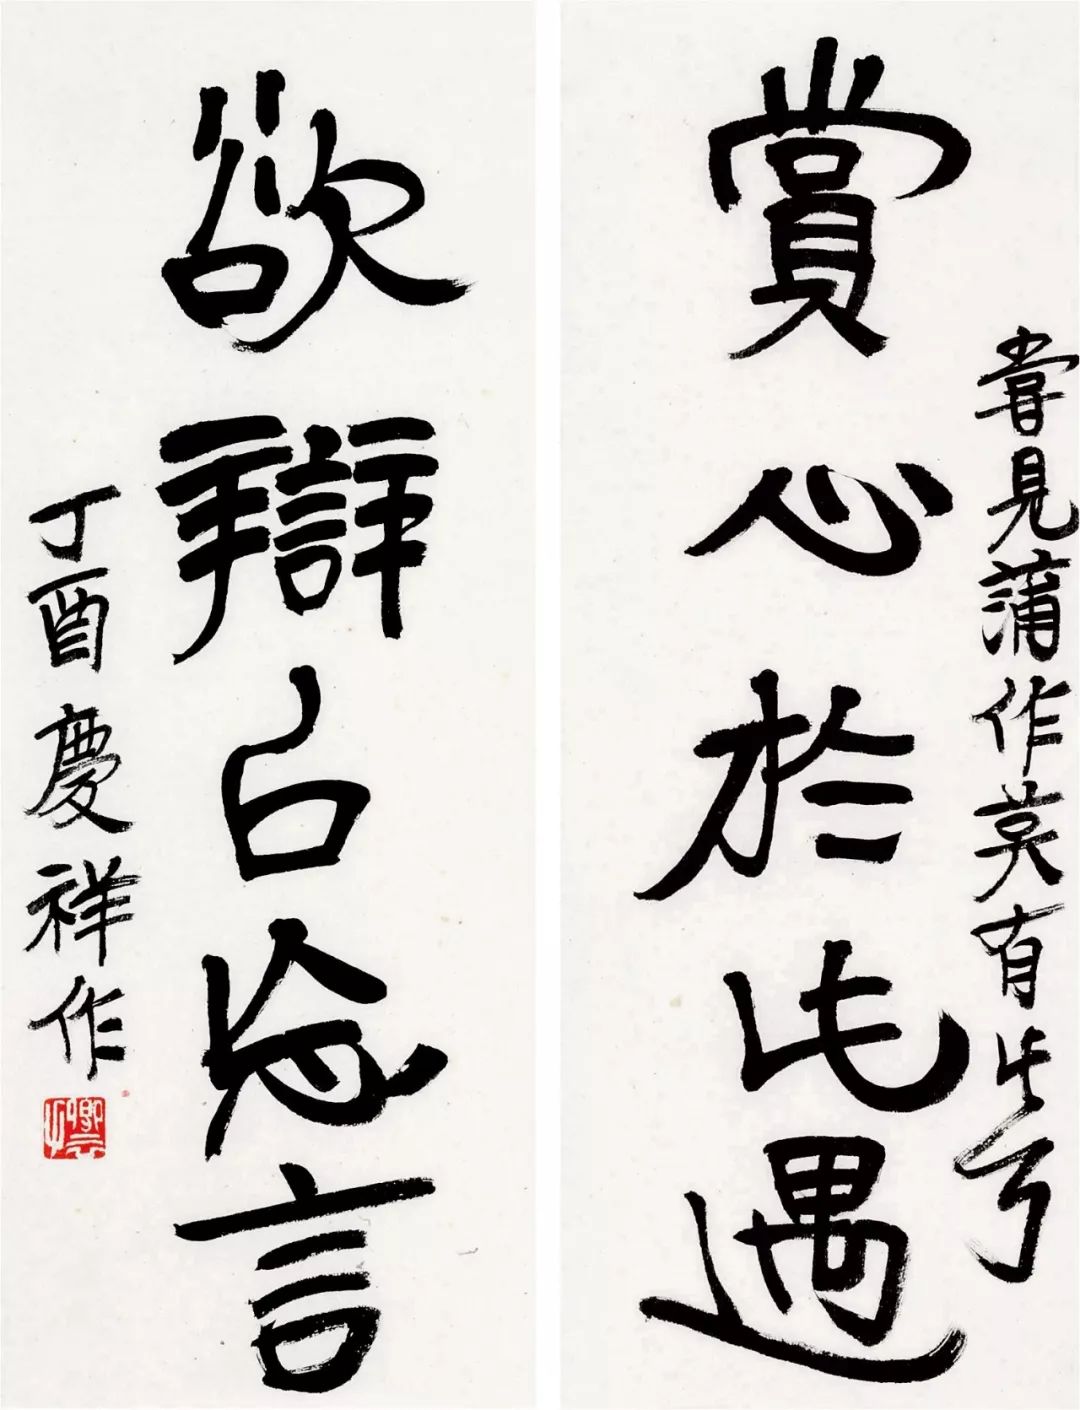 嘗見蒲作英有此
賞心於此遇
欲辯已忘言
丁酉慶祥作